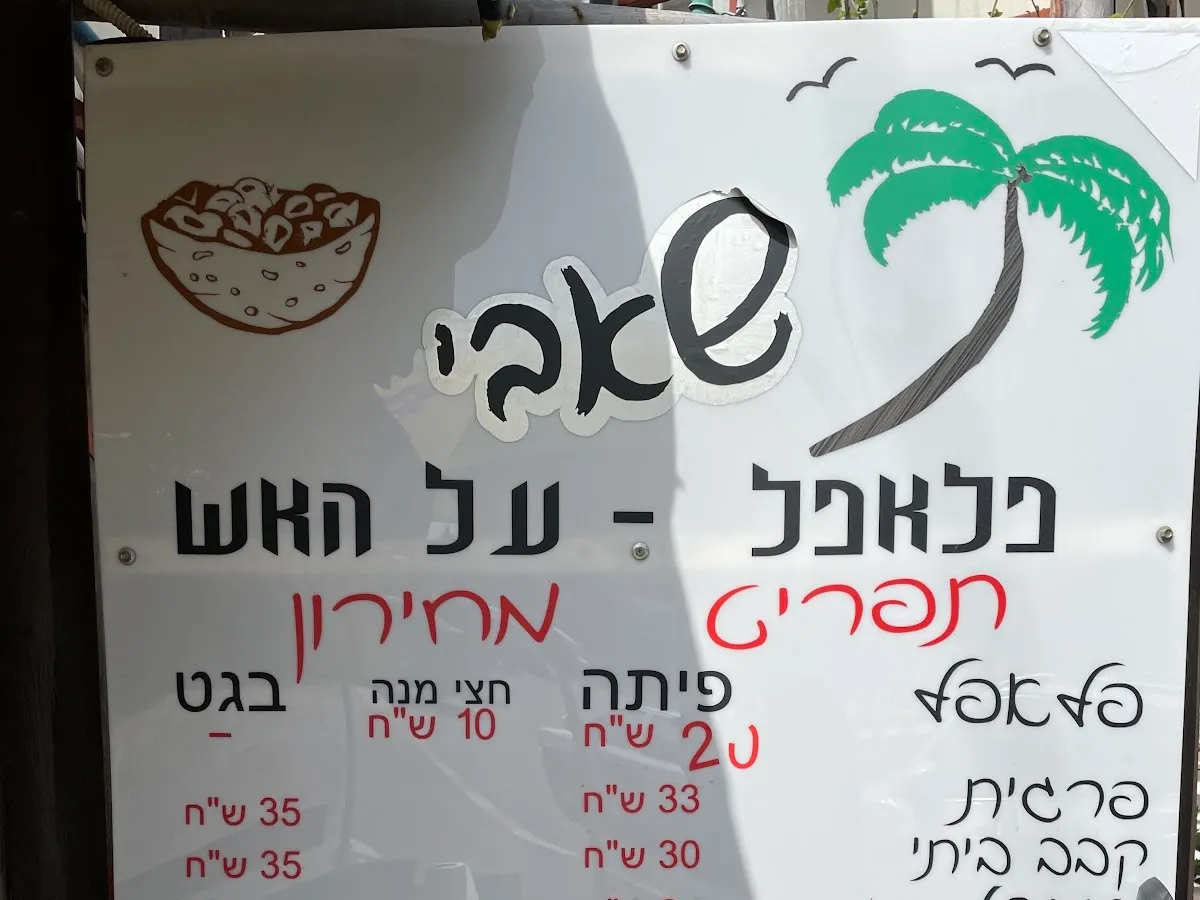 שאבי
פלאפל - על האש
תפריט מחירון
פיתה חצי מנה בגט
פלאפל 20 ש"ח 10 ש"ח -
פרגית 33 ש"ח 35 ש"ח
קבב ביתי 30 ש"ח 35 ש"ח